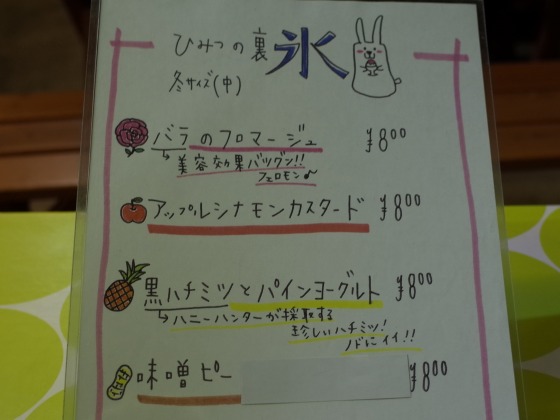 ひみつの裏 氷
冬サイズ(中)
バラのフロマージュ ¥800
美容効果バツグン!!
フェロモン♪
アップルシナモンカスタード ¥800
黒ハチミツとパインヨーグルト ¥800
ハニーハンターが採取する
珍しいハチミツ!
ノドにイイ!!
味噌ピー ¥800